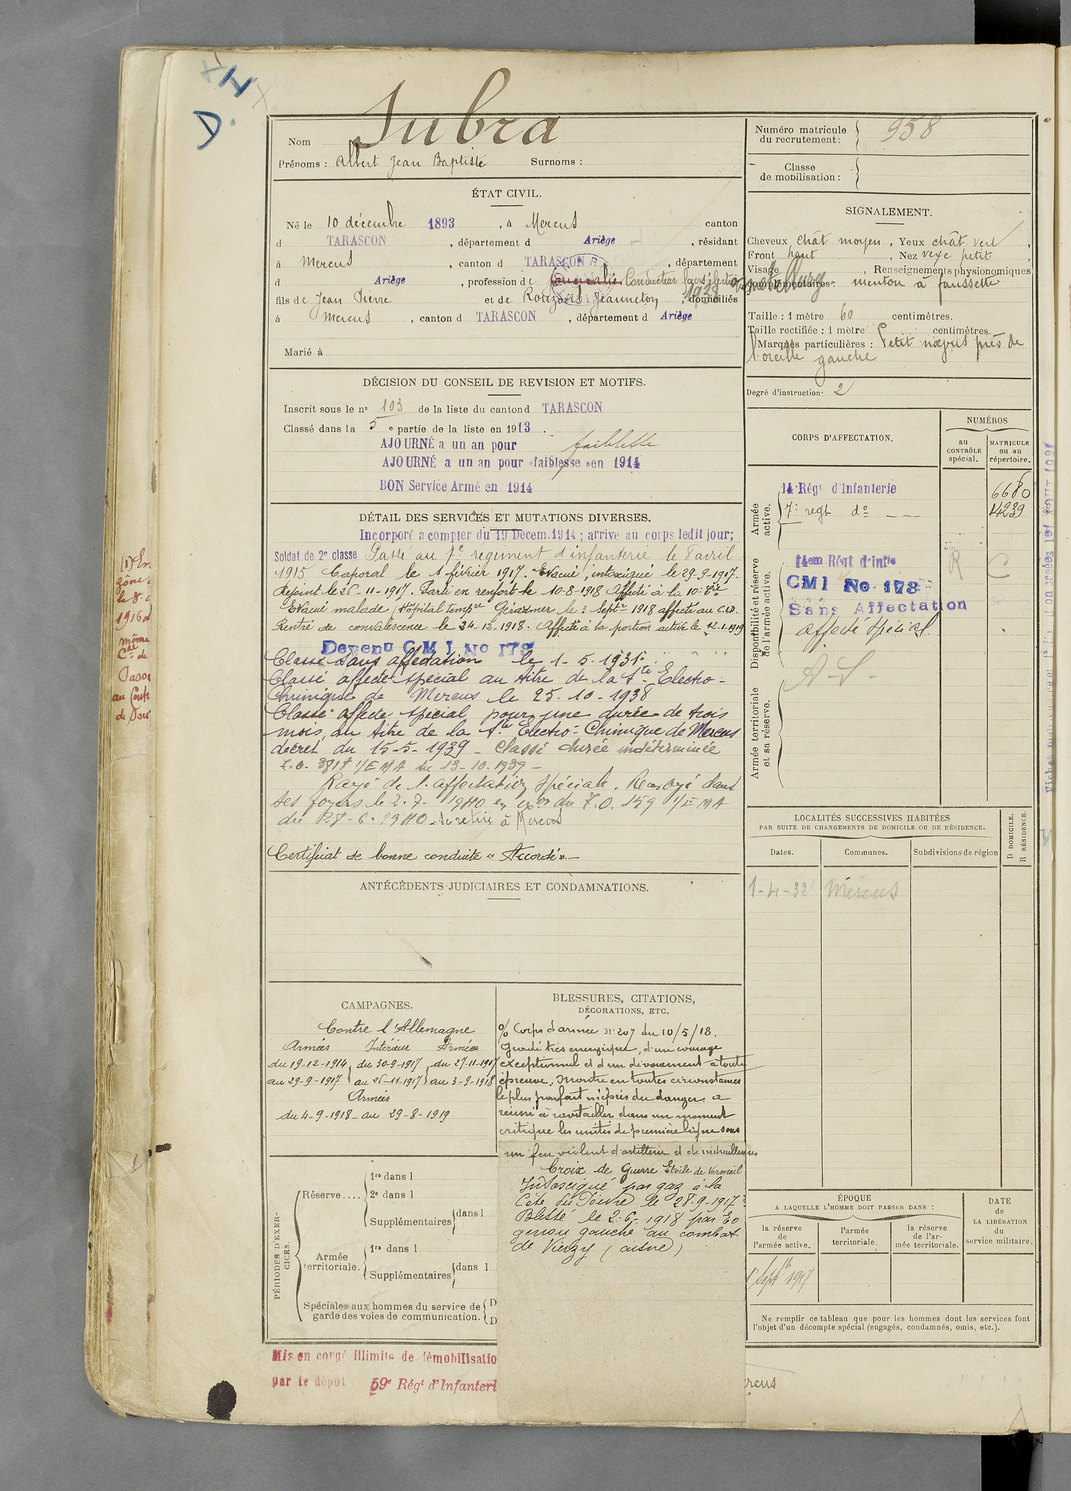 D.
Nom Subra
Prénoms : Albert Jean Baptiste Surnoms :
ÉTAT CIVIL.
Né le 10 décembre 1893, à Mercus canton
d TARASCON, département d Ariège, résidant
à Mercus, canton d TARASCON, département
d Ariège, profession de Conducteur
fils de Jean Pierre et de Rouzoul Jeanneton, domiciliés
à Mercus, canton d TARASCON, département d Ariège
Marié à
DÉCISION DU CONSEIL DE REVISION ET MOTIFS.
Inscrit sous le n° 103 de la liste du canton d TARASCON
Classé dans la 5e partie de la liste en 1913.
AJOURNÉ a un an pour faiblesse
AJOURNÉ a un an pour «faiblesse» en 1914
BON Service Armé en 1914
DÉTAIL DES SERVICES ET MUTATIONS DIVERSES.
Incorporé a compter du 19 Décem. 1914 ; arrive au corps ledit jour;
Soldat de 2e classe Passé au 7e régiment d'infanterie le 8 avril
1915 Caporal le 1 février 1917. Evacué, intoxiqué le 29-9-1917.
Rejoint le 26-11-1917. Parti en renfort le 10-8-1918 Affecté à la 10e Cie
Evacué malade, Hôpital tempre le 3 Septre 1918 affecté au C.D.
Rentré de convalescence le 24-12-1918. Affecté à la portion active le 12-1-1919
Devenu C M I No 178
Classé sans affectation le 1-5-1931
Classé affecté spécial au titre de la Sté Electro-
Chimique de Mercus le 25-10-1938
Classé affecté spécial pour une durée de trois
mois, au titre de la Sté Electro-Chimique de Mercus
décret du 15-5-1939 - Classé durée indéterminée
I/EMA du 13-10-1939 -
Rayé de l'affectation spéciale. Renvoyé dans
ses foyers le 2-7-1940 en exon du T.O. 159 1/EMA
du 25-6-1940 - se retire à Mercus
Certificat de bonne conduite « Accordé ». -
ANTÉCÉDENTS JUDICIAIRES ET CONDAMNATIONS.
CAMPAGNES.
Contre l'Allemagne
Armées Intérieur Armées
du 19-12-1914 du 30-9-1917, du 27-11-1917
au 29-9-1917 au 26-11-1917 au 3-9-1918
Armées
du 4-9-1918 - au 29-8-1919
PÉRIODES D'EXERCICES.
Réserve....
1re dans l
2e dans l
Supplémentaires dans l
Armée territoriale.
1re dans l
Supplémentaires dans l
Spéciales aux hommes du service de
garde des voies de communication.
BLESSURES, CITATIONS,
DÉCORATIONS, ETC.
% Corps d'armée n° 207 du 10/5/18.
Gradé très énergique, d'un courage
exceptionnel et d'un dévouement à toute
épreuve. Montre en toutes circonstances
le plus parfait mépris du danger, a
réussi à ravitailler dans un moment
critique les unités de première ligne sous
un feu violent d'artillerie et de mitrailleuses
Croix de Guerre Etoile de Vermeil
Intoxiqué par gaz à la
Côte du Poivre le 28-9-1917
Blessé le 2-6-1918 par Eo
genou gauche au combat
de Vierzy (aisne)
Mis en congé illimité de démobilisatio
par le dépot 59e Régt d'Infanteri
Numéro matricule
du recrutement : 958
Classe
de mobilisation :
SIGNALEMENT.
Cheveux chât moyen, Yeux chât vert,
Front haut, Nez vexe petit,
Visage, Renseignements physionomiques
complémentaires : menton à fossette
Taille : 1 mètre 60 centimètres.
Taille rectifiée : 1 mètre centimètres.
Marques particulières : Petit nœvus près de
l'oreille gauche
Degré d'instruction : 2
CORPS D'AFFECTATION.
NUMÉROS
AU CONTRÔLE spécial.
MATRICULE ou au répertoire.
Armée active.
14 Régt d'Infanterie 6680
7e regt do 14239
Disponibilité et réserve de l'armée active.
14em Rént d'Infie
CMI No 178
Sans Affectation
affecté spécial
R C
A.S.
Armée territoriale et sa réserve.
LOCALITÉS SUCCESSIVES HABITÉES
PAR SUITE DE CHANGEMENTS DE DOMICILE OU DE RÉSIDENCE.
Dates. Communes. Subdivisions de région
D DOMICILE.
R RÉSIDENCE.
1-4-32 Mercus
ÉPOQUE
A LAQUELLE L'HOMME DOIT PASSER DANS :
DATE DE LA LIBÉRATION du service militaire.
la réserve de l'armée active.
l'armée territoriale.
la réserve de l'armée territoriale.
1er Septbre 1917
Ne remplir ce tableau que pour les hommes dont les services font
l'objet d'un décompte spécial (engagés, condamnés, omis, etc.).
rcus